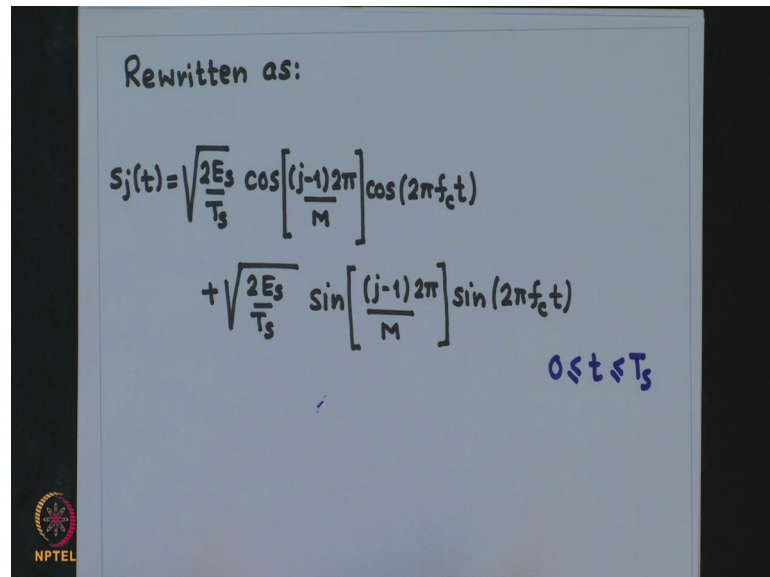 Rewritten as:
sj(t) = √(2Es/Ts) cos[(j-1)2π/M] cos(2πfct)
+ √(2Es/Ts) sin[(j-1)2π/M] sin(2πfct)
0 ≤ t ≤ Ts
NPTEL